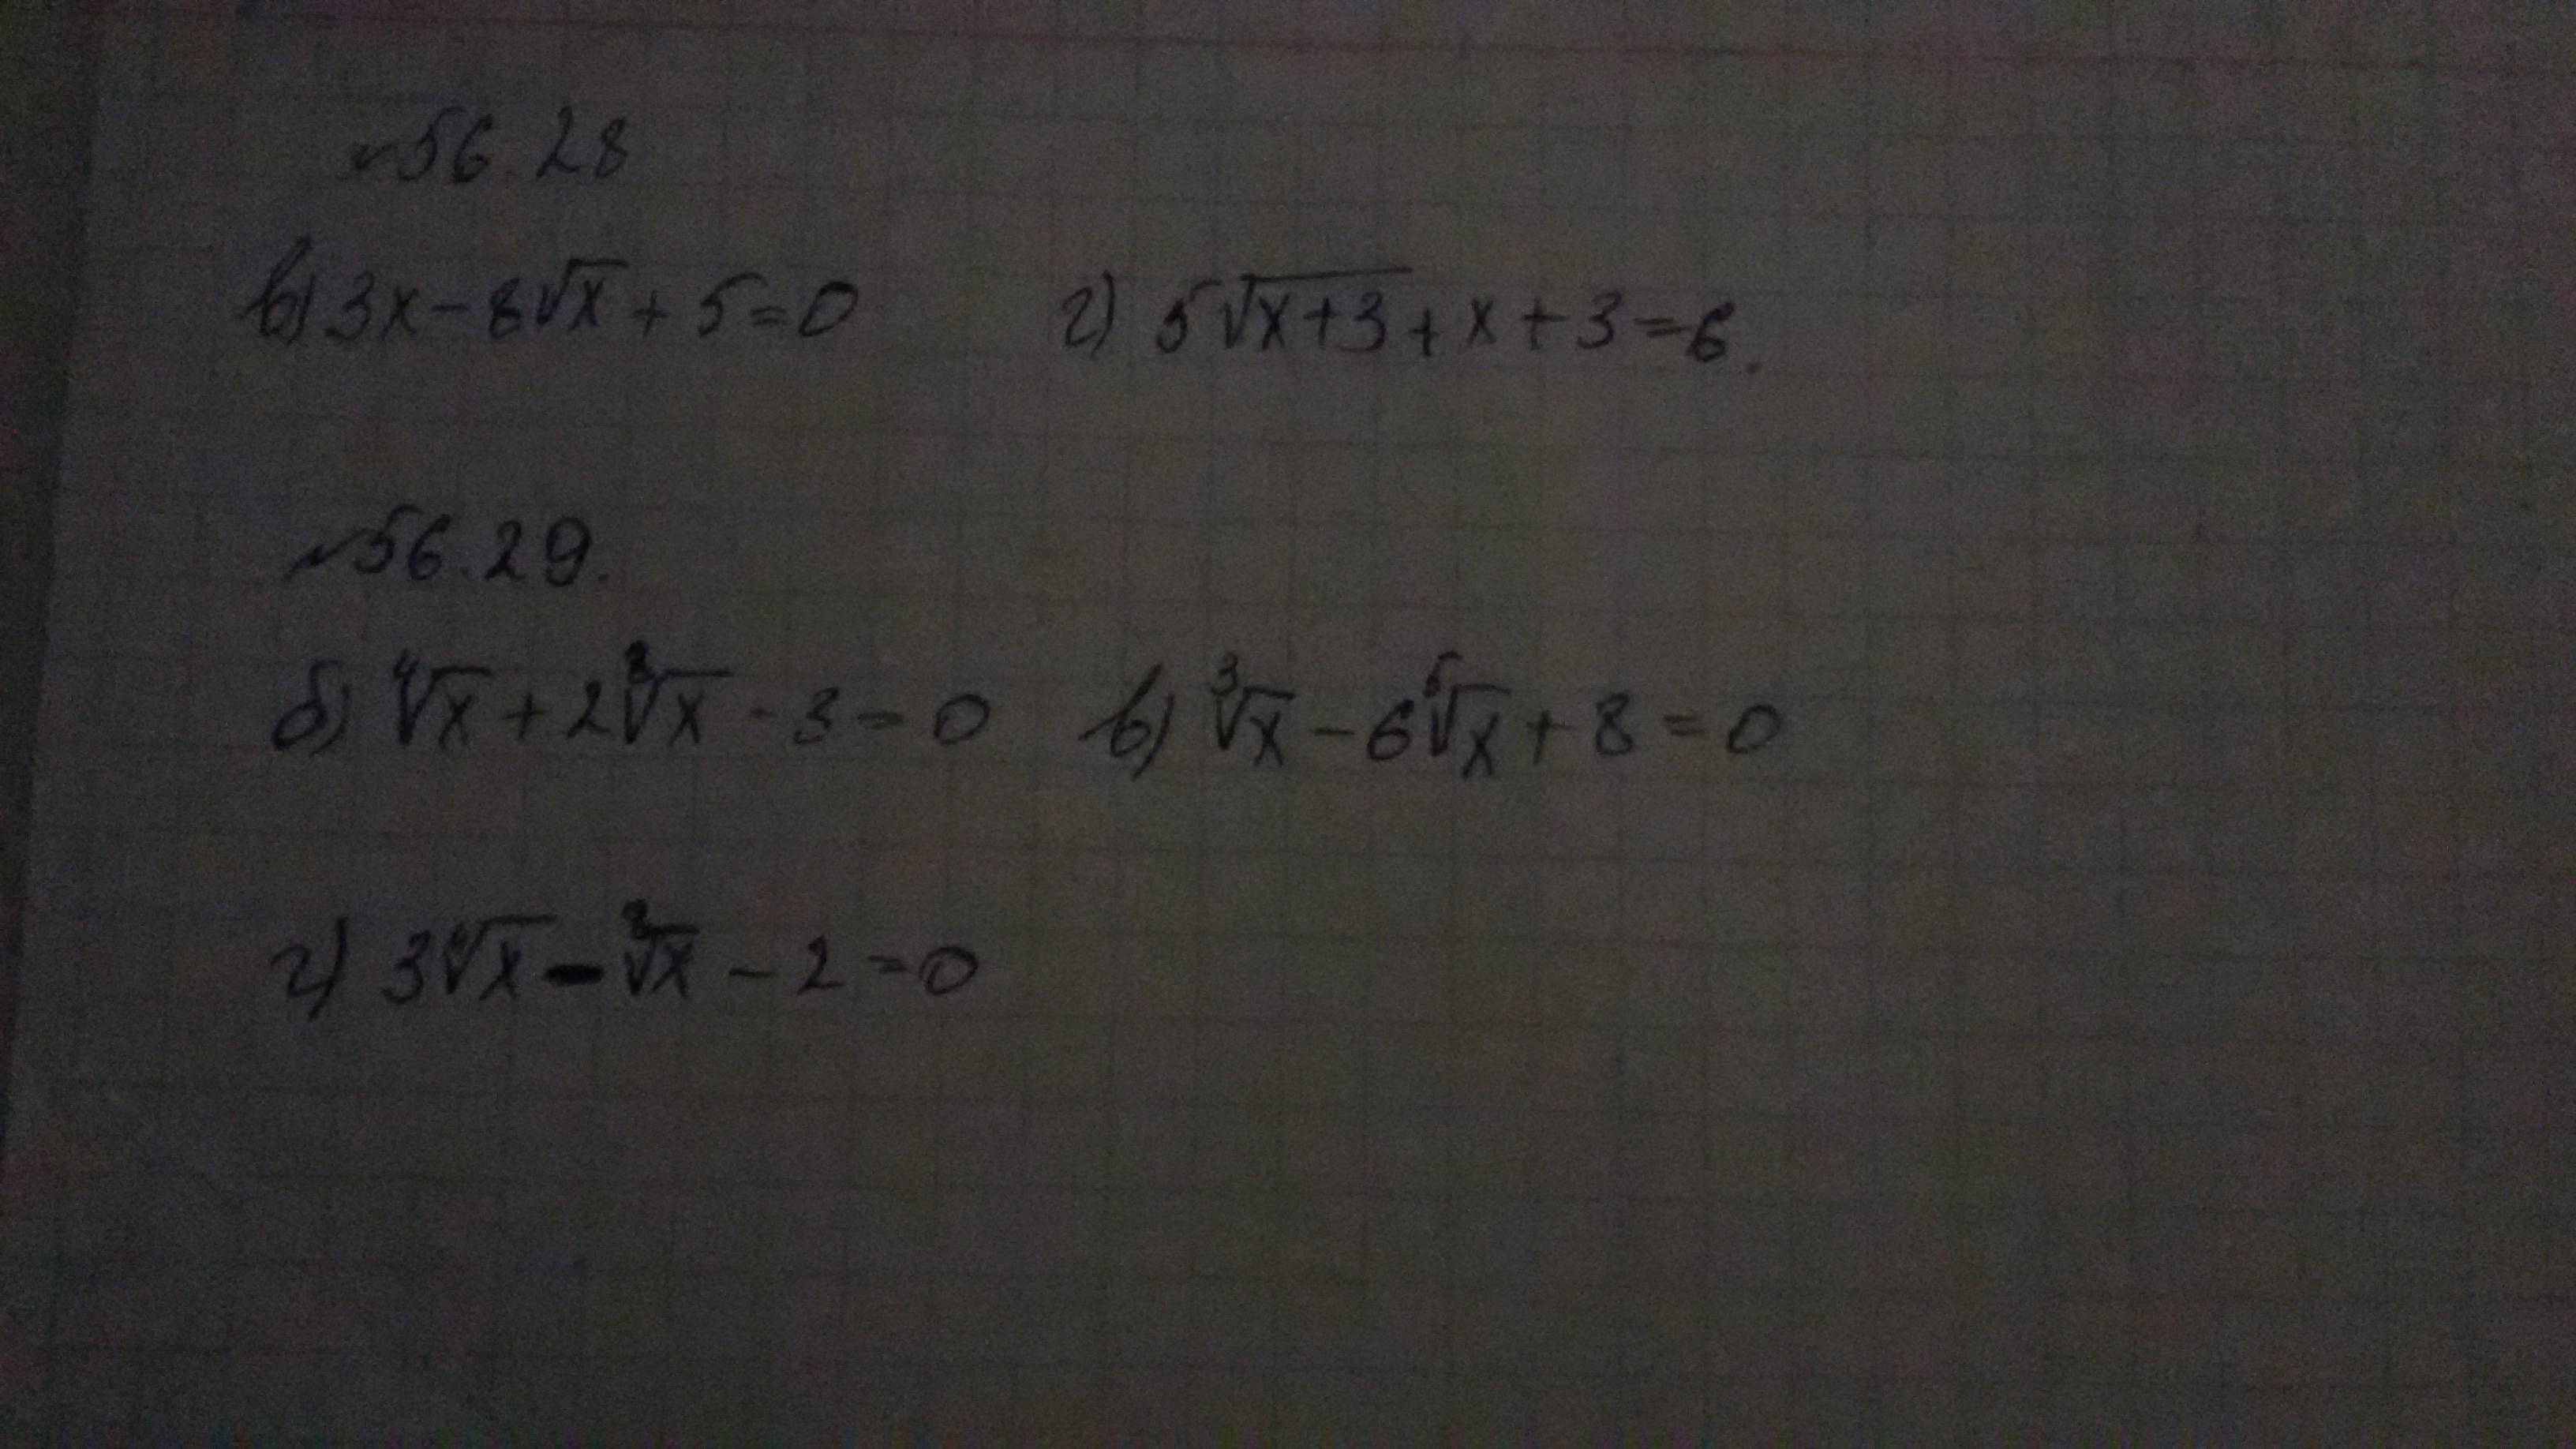 №56.28
в) 3x-8√x+5=0 г) 5√x+3+x+3=6.
№56.29.
б) ⁴√x+2⁸√x-3=0 в) ³√x-6⁶√x+8=0
г) 3⁴√x-⁸√x-2=0